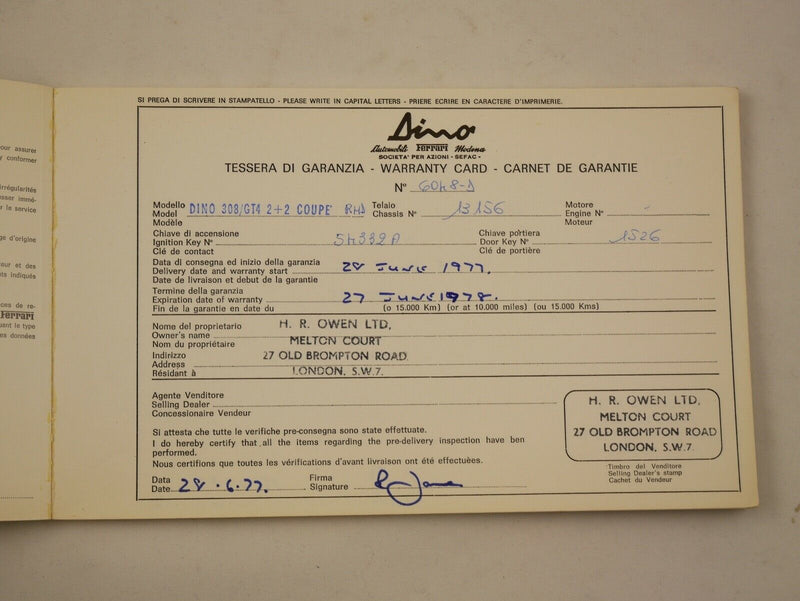 our assurer
y conformer
irrégularités
esser immé-
r le service
ge d'origine
eur et des
ts indiqués
ces de re-
Ferrari
uant le type
es données
SI PREGA DI SCRIVERE IN STAMPATELLO - PLEASE WRITE IN CAPITAL LETTERS - PRIERE ECRIRE EN CARACTERE D'IMPRIMERIE.
Dino
Automobili Ferrari Modena
SOCIETA' PER AZIONI - SEFAC -
TESSERA DI GARANZIA - WARRANTY CARD - CARNET DE GARANTIE
N° 6048-D
Modello
Model DINO 308/GT4 2+2 COUPE' RHD
Modèle
Telaio
Chassis N° 13156
Motore
Engine N°
Moteur
Chiave di accensione
Ignition Key N° 54339A
Clé de contact
Chiave portiera
Door Key N° 1526
Clé de portière
Data di consegna ed inizio della garanzia
Delivery date and warranty start 28 JUNE 1977.
Date de livraison et debut de la garantie
Termine della garanzia
Expiration date of warranty 27 JUNE 1978.
Fin de la garantie en date du (o 15.000 Km) (or at 10.000 miles) (ou 15.000 Kms)
Nome del proprietario H. R. OWEN LTD,
Owner's name
Nom du propriétaire MELTON COURT
Indirizzo 27 OLD BROMPTON ROAD
Address
Résidant à LONDON, S.W.7.
Agente Venditore
Selling Dealer
Concessionaire Vendeur
Si attesta che tutte le verifiche pre-consegna sono state effettuate.
I do hereby certify that all the items regarding the pre-delivery inspection have ben
performed.
Nous certifions que toutes les vérifications d'avant livraison ont été effectuées.
H. R. OWEN LTD,
MELTON COURT
27 OLD BROMPTON ROAD
LONDON, S.W.7.
Timbro del Venditore
Selling Dealer's stamp
Cachet du Vendeur
Data
Date 28.6.77.
Firma
Signature